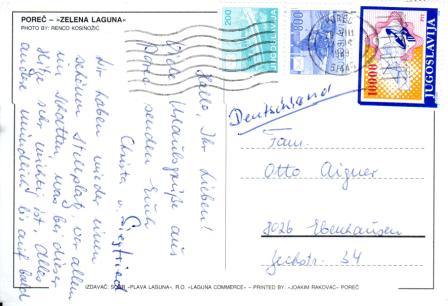 POREČ – »ZELENA LAGUNA«
PHOTO BY: RENCO KOSINOŽIĆ
Hallo, Ihr Lieben!
Liebe Urlaubsgrüße aus
Poreč senden Euch
Christa u. Siegfried
Wir haben wieder einen
schönen Stellplatz, vor allem
im Schatten, was bei dieser
Hitze sehr wichtig ist. Alles
andere mündlich bis auf bald
200
JUGOSLAVIJA
800
JUGOSLAVIJA
10000
JUGOSLAVIJA
POREČ
Deutschland
Fam.
Otto Aigner
8026 Ebenhausen
34
IZDAVAČ: SOUR »PLAVA LAGUNA«, R.O. »LAGUNA COMMERCE« – PRINTED BY: »JOAKIM RAKOVAC« POREČ